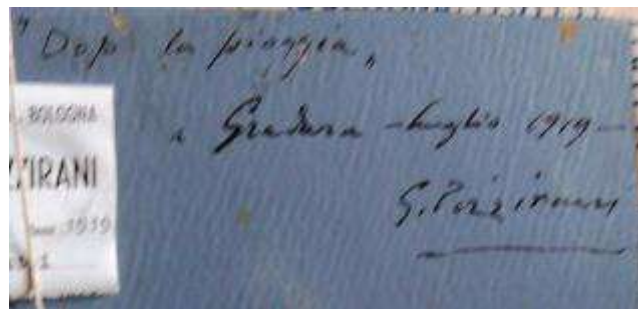 "Dopo la pioggia„
a Gradara - luglio 1919 -
G. Pizzirani
BOLOGNA
ZIRANI
1919
1